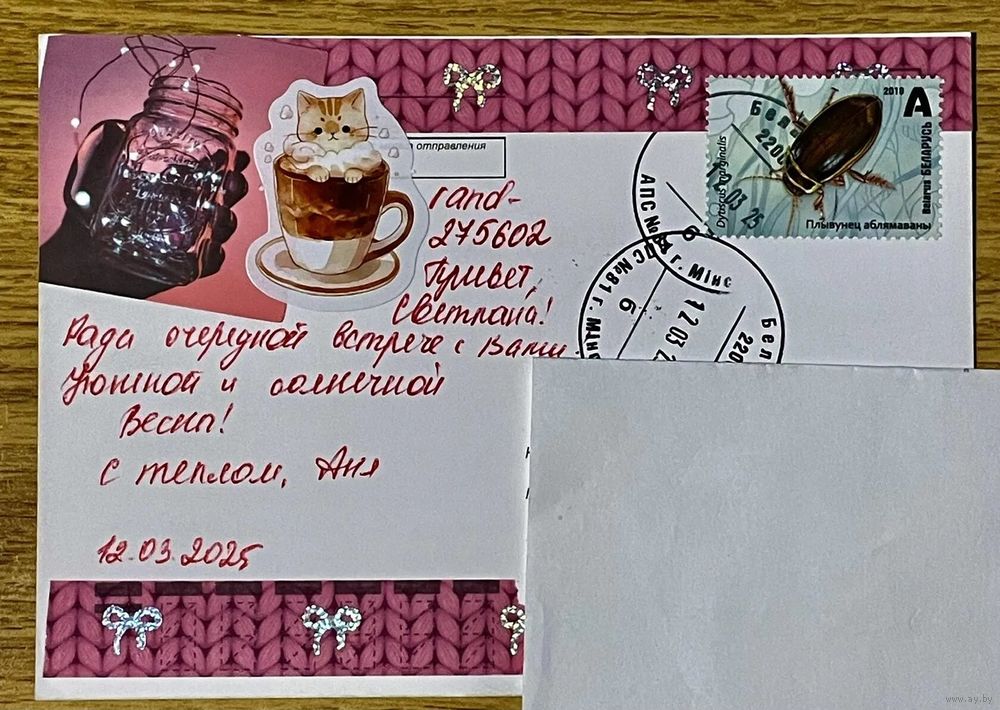 та отправления
rand-
275602
Привет,
Светлана!
Рада очередной встрече с Вами.
Уютной и солнечной
Весны!
С теплом, Аня
12.03.2025
2010
A
Dytiscus marginalis
Belarus БЕЛАРУСЬ
Плывунец аблямаваны
Бела
2200
03 25
АПС №
г. Мінс
б
АПС №81 г. Мінс
б
12 03 2
Бел
220
www.ay.by